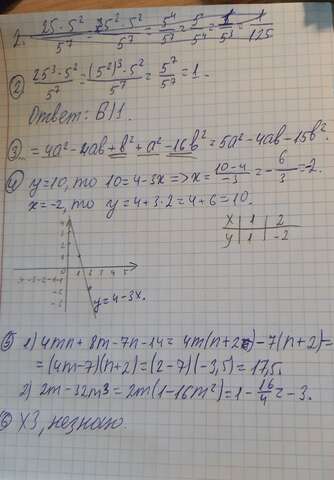 2. 25·5²/5⁷ = 25²·5²/5⁷ = 5⁴/5⁷ = 5/5⁴ = 1/5³ = 1/125
② 25³·5²/5⁷ = (5²)³·5²/5⁷ = 5⁷/5⁷ = 1.
Ответ: В)1.
③ = 4a² - 4ab + b² + a² - 16b² = 5a² - 4ab - 15b².
④ y=10, то 10=4-3x => x = 10-4/-3 = -6/3 = -2
x=-2, то y=4+3·2=4+6=10.
x 1 2
y 1 -2
y=4-3x.
⑤ 1) 4mn + 8m - 7n - 14 = 4m(n+2) - 7(n+2) =
= (4m-7)(n+2) = (2-7)(-3,5) = 17,5.
2) 2m - 32m³ = 2m(1-16m²) = 1 - 16/4 = -3.
⑥ ХЗ, незнаю.